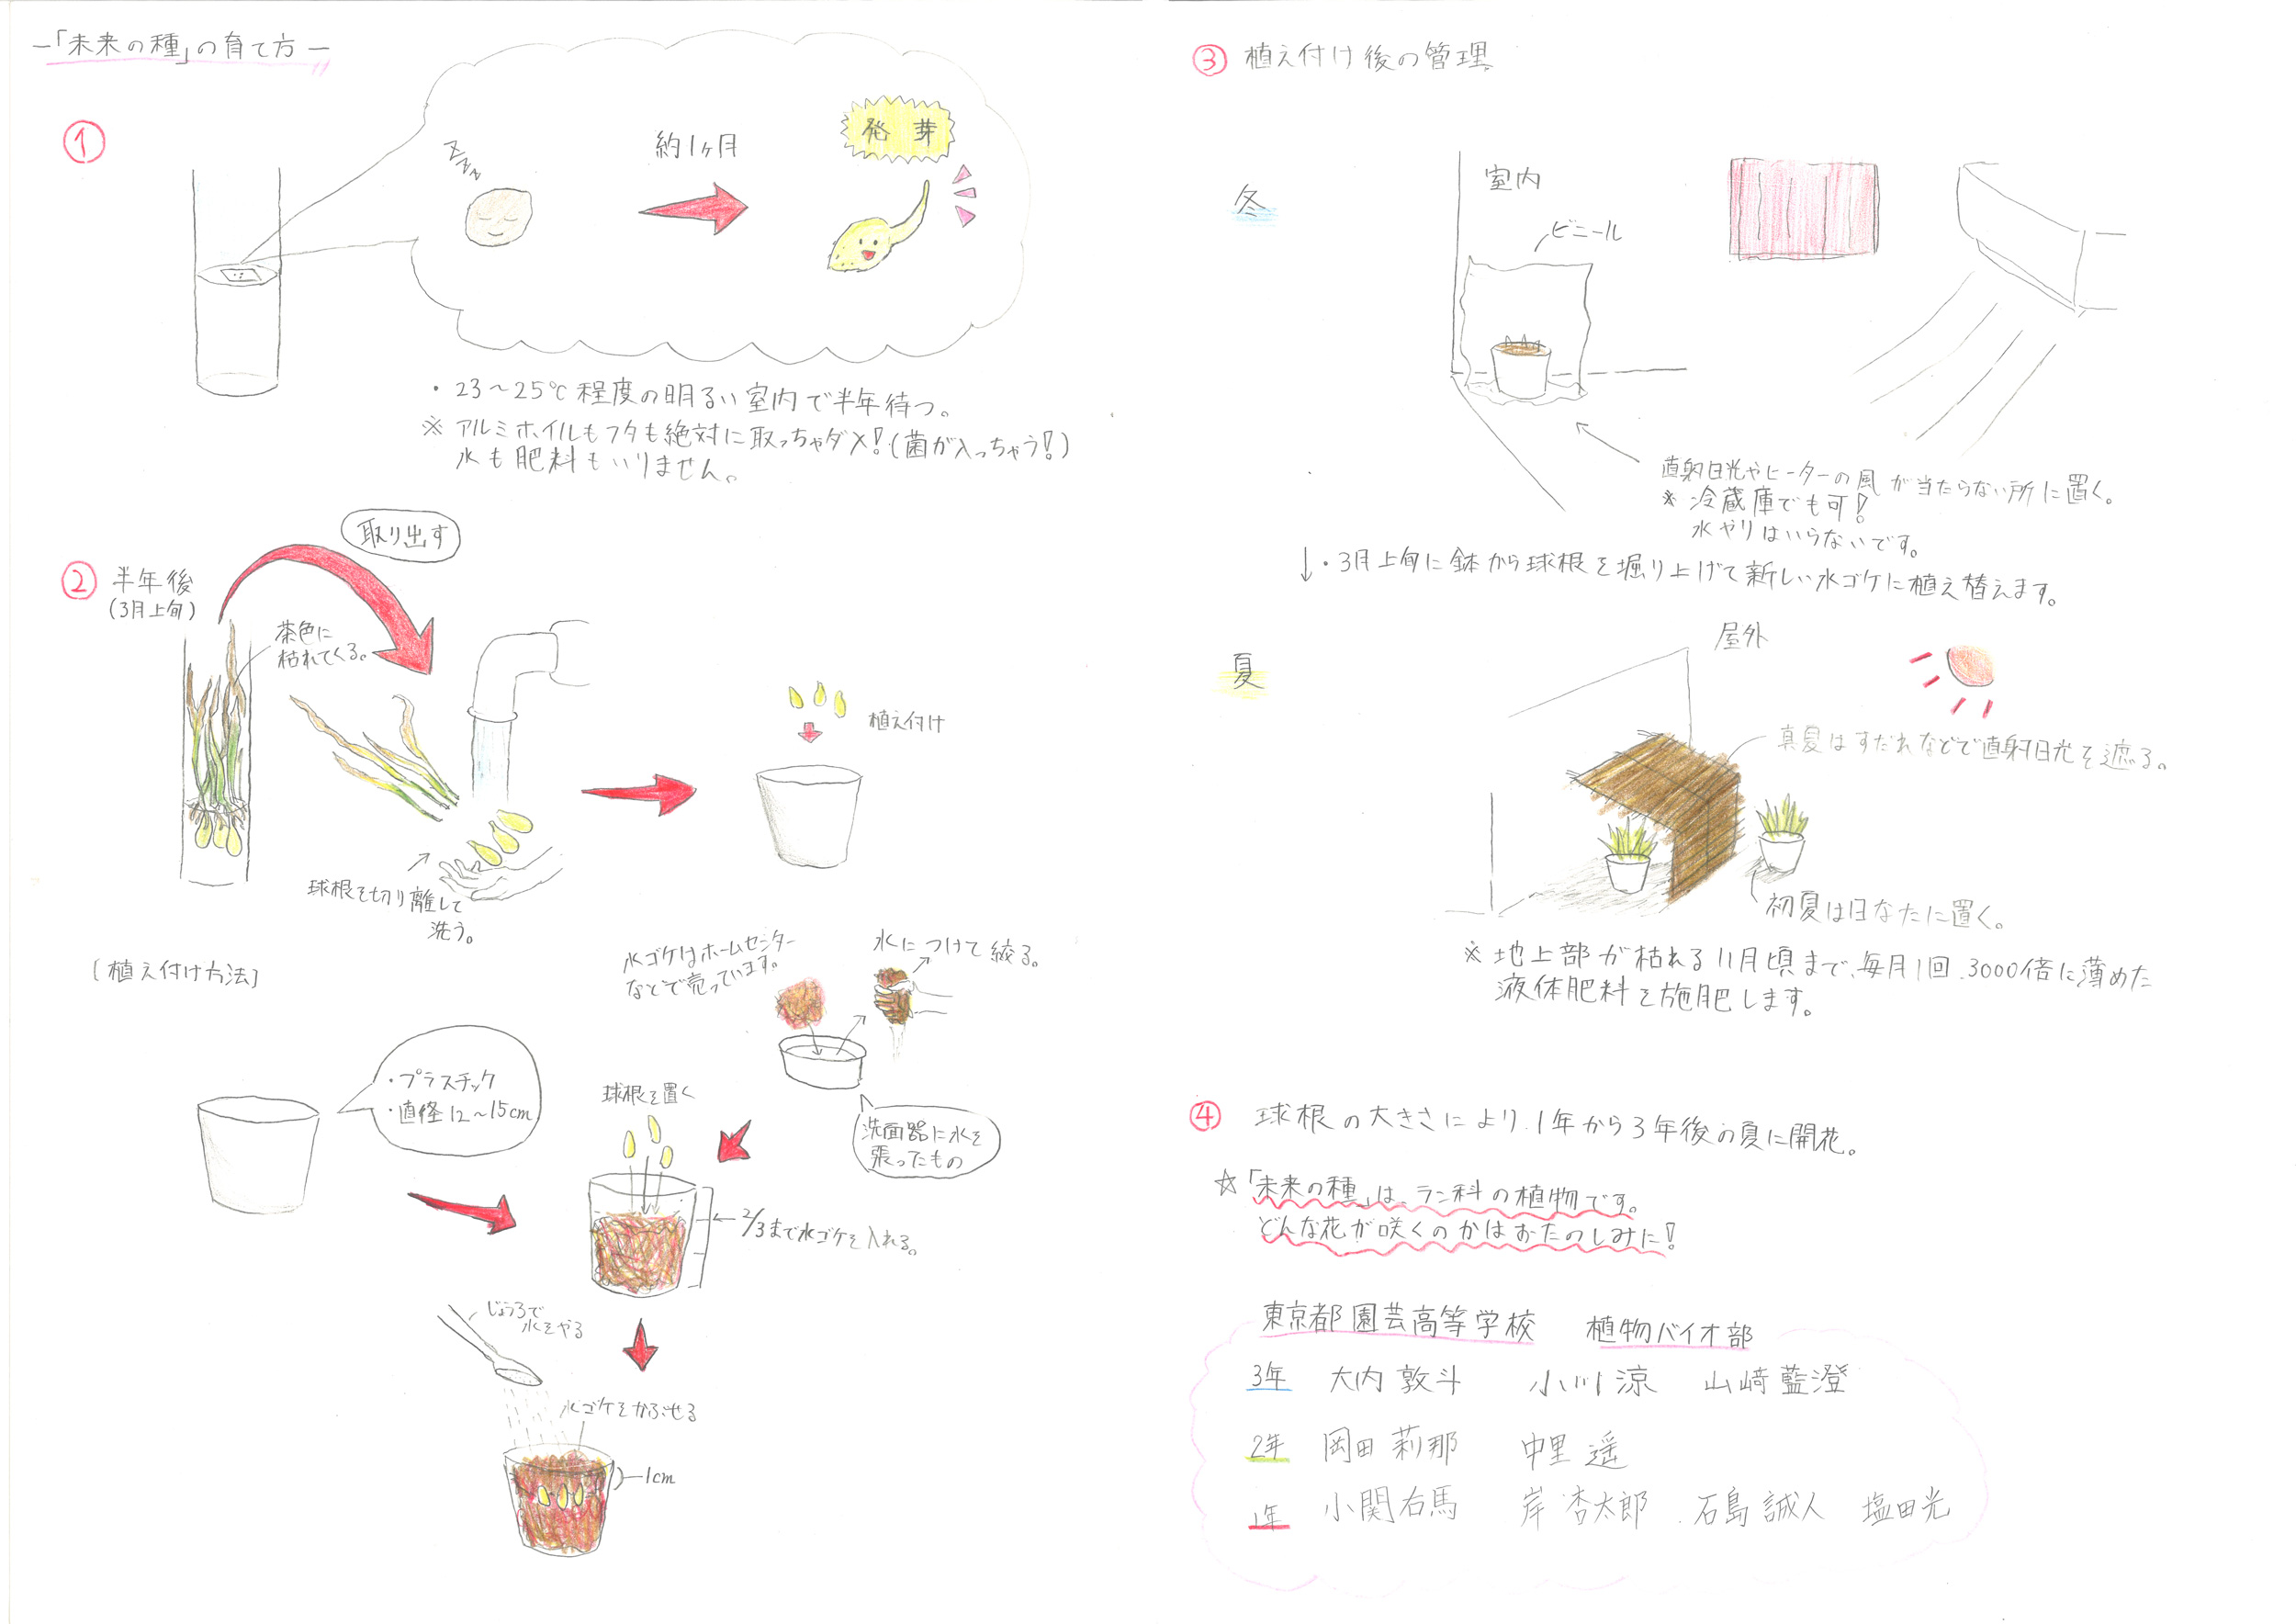 ―「未来の種」の育て方―
①
ZZZZ
約1ヶ月
発芽
・23～25℃程度の明るい室内で半年待つ。
※アルミホイルもフタも絶対に取っちゃダメ！(菌が入っちゃう！)
水も肥料もいりません。
② 半年後
(3月上旬)
取り出す
茶色に
枯れてくる。
球根を切り離して
洗う。
植え付け
[植え付け方法]
・プラスチック
・直径12～15cm
水ゴケはホームセンター
などで売っています。
水につけて絞る。
洗面器に水を
張ったもの
球根を置く
2/3まで水ゴケを入れる。
じょうろで
水をやる
水ゴケをかぶせる
1cm
③ 植え付け後の管理
冬
室内
ビニール
直射日光やヒーターの風が当たらない所に置く。
※冷蔵庫でも可！
水やりはいらないです。
↓・3月上旬に鉢から球根を堀り上げて新しい水ゴケに植え替えます。
夏
屋外
真夏はすだれなどで直射日光を遮る。
初夏は日なたに置く。
※地上部が枯れる11月頃まで、毎月1回、3000倍に薄めた
液体肥料を施肥します。
④ 球根の大きさにより、1年から3年後の夏に開花。
☆「未来の種」は、ラン科の植物です。
どんな花が咲くのかはおたのしみに！
東京都園芸高等学校 植物バイオ部
3年 大内敦斗 小川涼 山﨑藍澄
2年 岡田莉那 中里遥
1年 小関右馬 岸杏太郎 石島誠人 塩田光